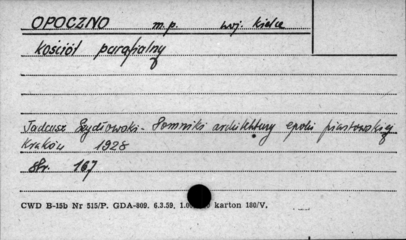 OPOCZNO m.p. woj. Kielce
kościół parafialny
Tadeusz Szydłowski - Pomniki architektury epoki piastowskiej
Kraków 1928
Str. 167
CWD B-15b Nr 515/P. GDA-809. 6.3.59, karton 180/V.